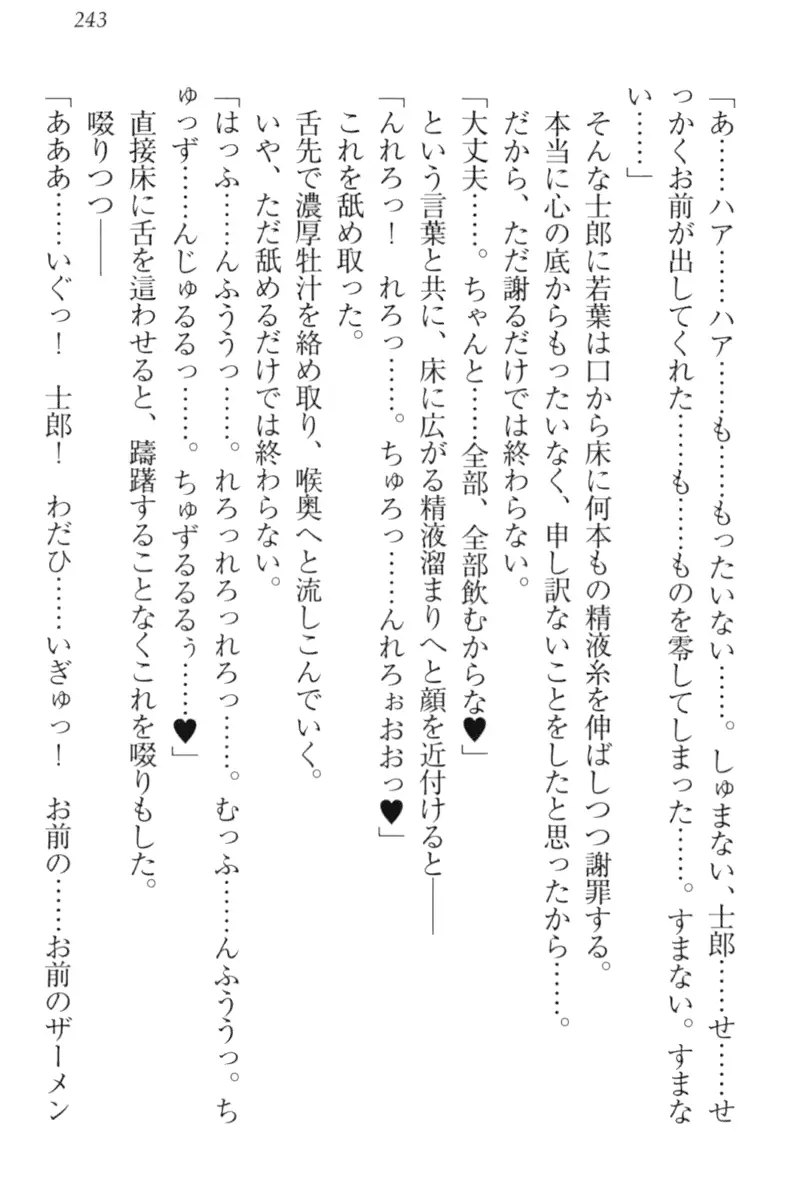 243
「あ……ハア……ハア……も……もったいない……。しゅまない、士郎……せ……せ
っかくお前が出してくれた……も……ものを零してしまった……。すまない。すまな
い……」
そんな士郎に若葉は口から床に何本もの精液糸を伸ばしつつ謝罪する。
本当に心の底からもったいなく、申し訳ないことをしたと思ったから……。
だから、ただ謝るだけでは終わらない。
「大丈夫……。ちゃんと……全部、全部飲むからな♥」
という言葉と共に、床に広がる精液溜まりへと顔を近付けると――
「んれろっ！　れろっ……。ちゅろっ……んれろぉおおっ♥」
これを舐め取った。
舌先で濃厚牡汁を絡め取り、喉奥へと流しこんでいく。
いや、ただ舐めるだけでは終わらない。
「はっふ……んふううっ……。れろっれろっれろっ……。むっふ……んふううっ。ち
ゅっず……んじゅるるっ……。ちゅずるるるぅ……♥」
直接床に舌を這わせると、躊躇することなくこれを啜りもした。
啜りつつ――
「あああ……いぐっ！　士郎！　わだひ……いぎゅっ！　お前の……お前のザーメン